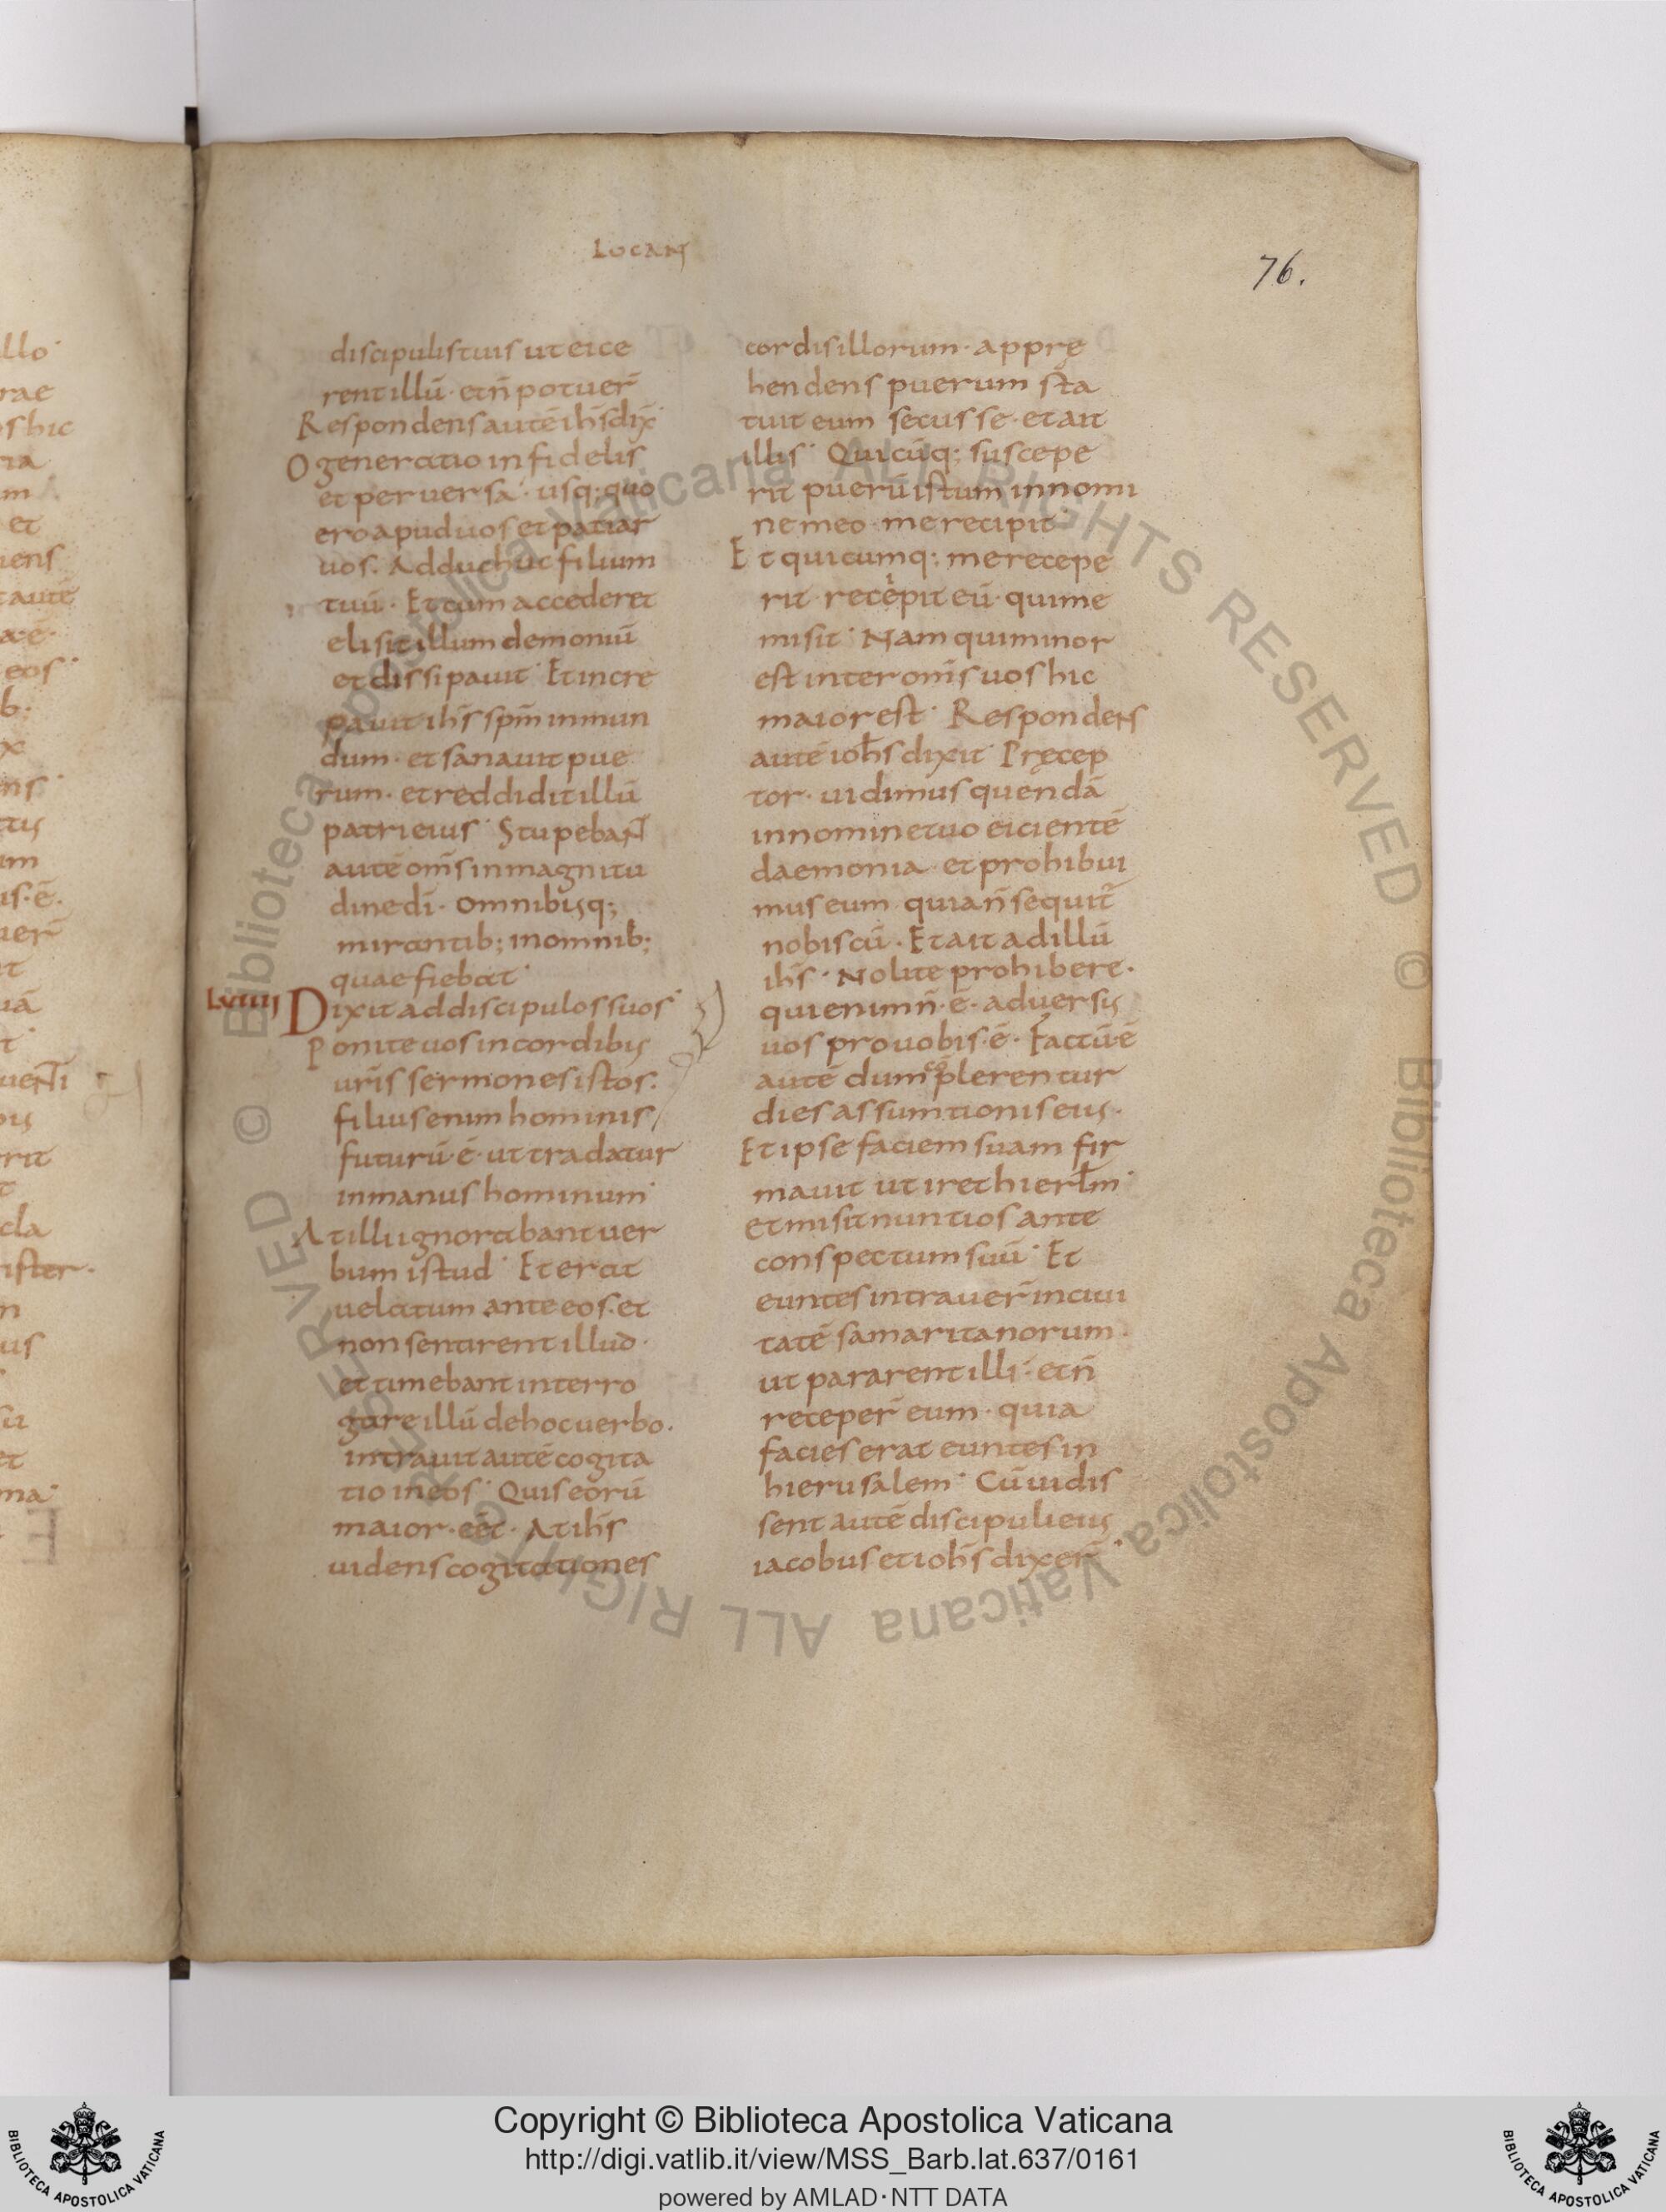 LUCAN
76.
discipulis tuis ut eice
rent illū· et n̄ potuer̄
Respondens autē ih̄s dix̄·
O generatio infidelis
et peruersa· usq; quo
ero apud uos et patiar
uos. Adduc huc filium
tuū· Et cum accederet
elisit illum demoniū
et dissipauit· Et incre
pauit ih̄s sp̄m inmun
dum· et sanauit pue
rum· et reddidit illū
patri eius· Stupebant
autē om̄s in magnitu
dine dī· Omnibusq;
mirantib; in omnib;
quae fiebat·
LVIIII Dixit ad discipulos suos·
Ponite uos in cordibus
ur̄is sermones istos.
filius enim hominis
futurū·ē· ut tradatur
in manus hominum·
At illi ignorabant uer
bum istud· Et erat
uelatum ante eos· et
non sentirent illud·
et timebant interro
gare illū de hoc uerbo.
intrauit autē cogita
tio in eos· Quis eorū
maior· eēt· At ih̄s
uidens cogitationes
cordis illorum· apprę
hendens puerum sta
tuit eum secus se· et ait
illis· Quicūq; suscepe
rit puerū istum in nomi
ne meo· me recipit·
Et quicumq; me recepe
rit· recepit eū· qui me
misit· Nam qui minor
est inter om̄s uos hic
maior est· Respondens
autē ioh̄s dixit· Pręcep
tor· uidimus quendā
in nomine tuo eicientē
daemonia· et prohibui
mus eum· quia n̄ sequit̄
nobiscū· Et ait ad illū
ih̄s· Nolite prohibere·
qui enim n̄·ē· aduersus
uos pro uobis·ē· Factū·ē
autē dum cōplerentur
dies assumtionis eius·
Et ipse faciem suam fir
mauit ut iret hierl̄m·
et misit nuntios ante
conspectum suū· Et
euntes intrauer̄ in ciui
tatē samaritanorum·
ut pararent illi· et n̄
receper̄ eum· quia
facies erat euntes in
hierusalem· Cū uidis
sent autē discipuli eius
iacobus et ioh̄s dixer̄·
Copyright © Biblioteca Apostolica Vaticana
http://digi.vatlib.it/view/MSS_Barb.lat.637/0161
powered by AMLAD·NTT DATA